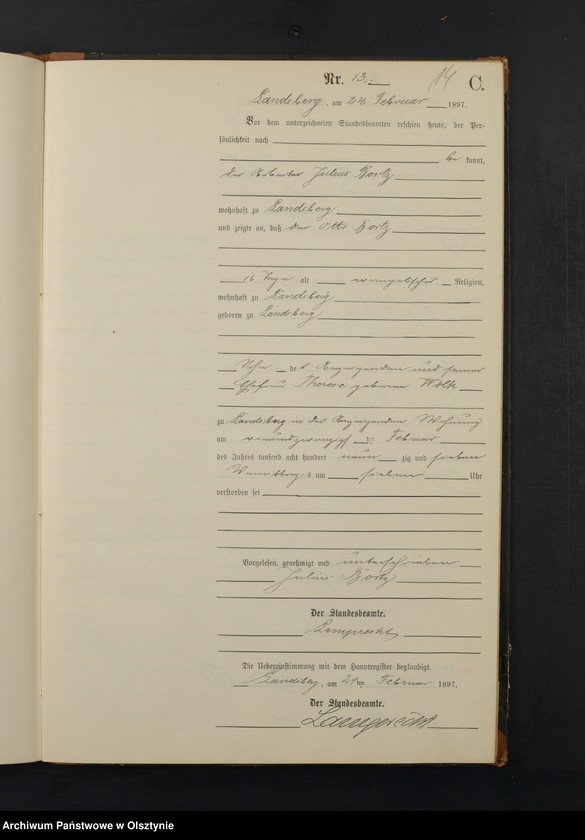 Nr. 13. 14 C.
Landsberg, am 24. Februar 1897.
Vor dem unterzeichneten Standesbeamten erschien heute, der Per-
sönlichkeit nach
be kannt,
der Arbeiter Julius
wohnhaft zu Landsberg
und zeigte an, daß der Otto
16 Tage alt evangelischer Religion,
wohnhaft zu Landsberg
geboren zu Landsberg
Sohn des Anzeigenden und seiner
Ehefrau Therese geborene Wölk
zu Landsberg in des Anzeigenden Wohnung
am vierundzwanzigsten Februar
des Jahres tausend acht hundert neun zig und sieben
Vormittags um sieben Uhr
verstorben sei
Vorgelesen, genehmigt und unterschrieben
Julius
Der Standesbeamte.
Lamprecht
Die Uebereinstimmung mit dem Hauptregister beglaubigt.
Landsberg, am 24ten Februar 1897.
Der Standesbeamte.
Lamprecht.
Archiwum Państwowe w Olsztynie